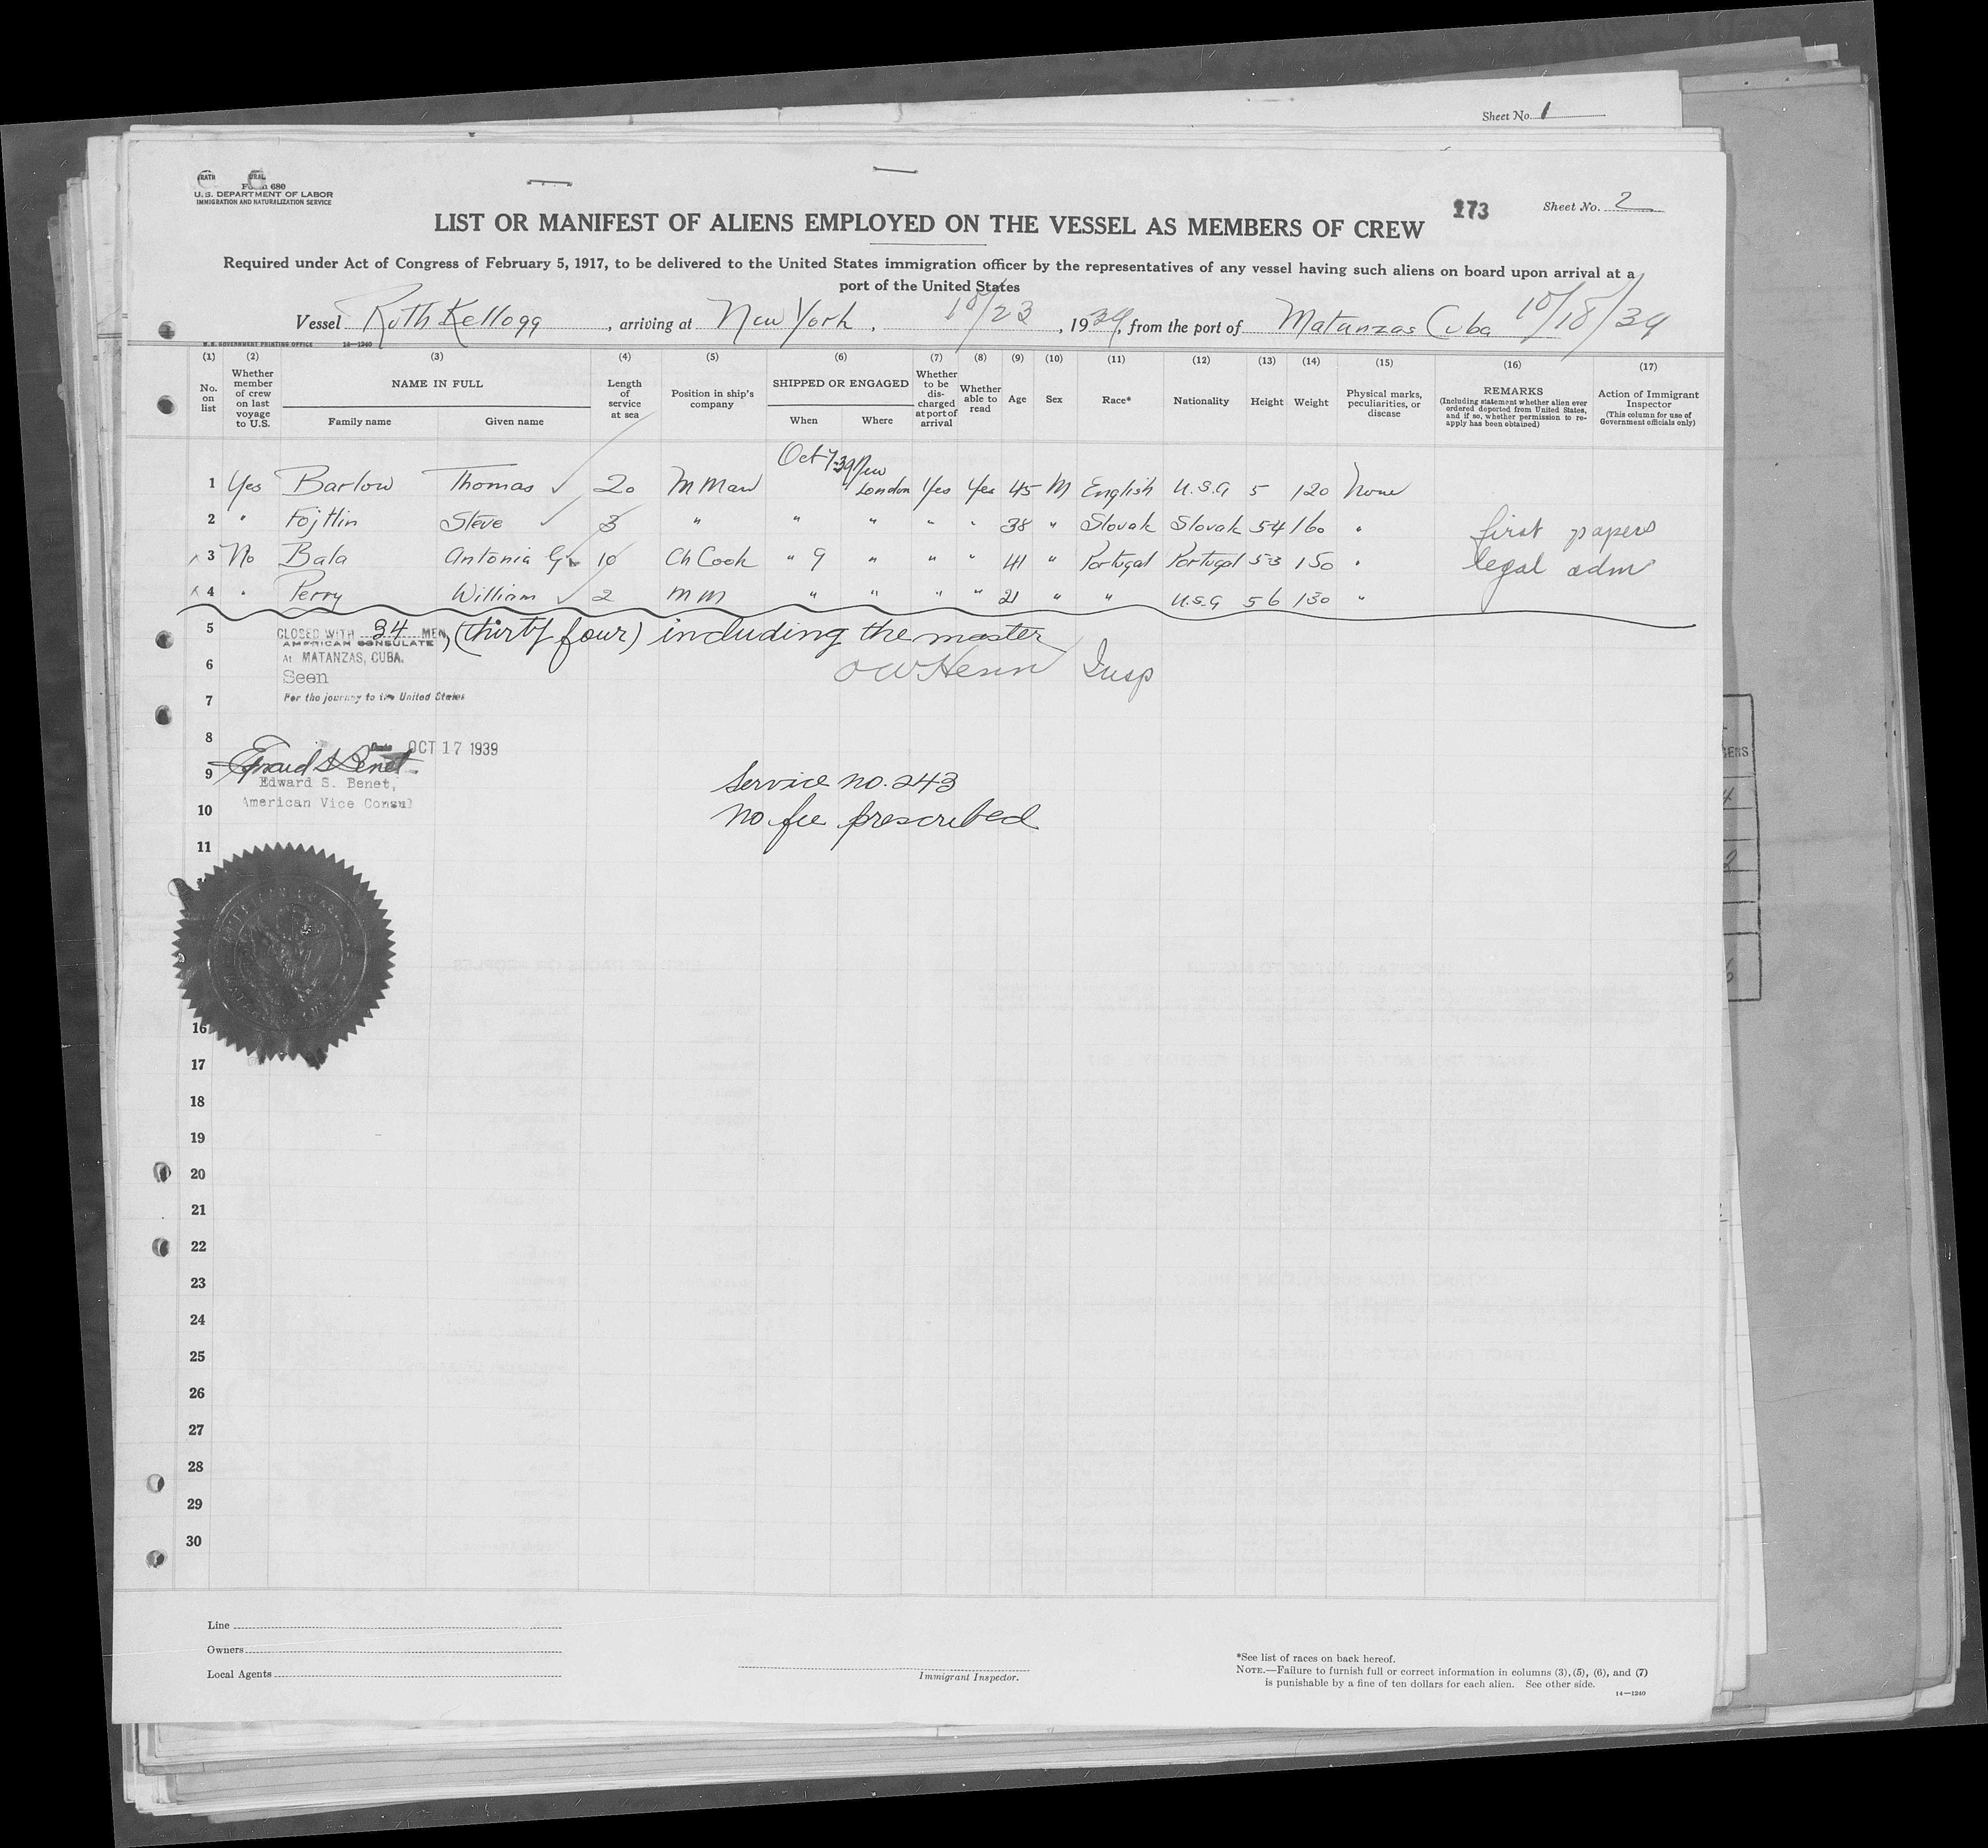 Sheet No. 1
Form 680
U.S. DEPARTMENT OF LABOR
IMMIGRATION AND NATURALIZATION SERVICE
173
Sheet No. 2
LIST OR MANIFEST OF ALIENS EMPLOYED ON THE VESSEL AS MEMBERS OF CREW
Required under Act of Congress of February 5, 1917, to be delivered to the United States immigration officer by the representatives of any vessel having such aliens on board upon arrival at a
port of the United States
Vessel Ruth Kellogg, arriving at New York, 10/23, 1939, from the port of Matanzas Cuba 10/18/39
U.S. GOVERNMENT PRINTING OFFICE 14—1240
(1) (2) (3) (4) (5) (6) (7) (8) (9) (10) (11) (12) (13) (14) (15) (16) (17)
No. on list
Whether member of crew on last voyage to U.S.
NAME IN FULL
Family name
Given name
Length of service at sea
Position in ship's company
SHIPPED OR ENGAGED
When
Where
Whether to be discharged at port of arrival
Whether able to read
Age
Sex
Race*
Nationality
Height
Weight
Physical marks, peculiarities, or disease
REMARKS
(Including statement whether alien ever ordered deported from United States, and if so, whether permission to re-apply has been obtained)
Action of Immigrant Inspector
(This column for use of Government officials only)
1 Yes Barlow Thomas ✓ 20 M Man Oct 7-39 New London Yes Yes 45 M English U.S.A 5 120 None
2 " Fojtlin Steve ✓ 3 " " " " " 38 " Slovak Slovak 54 160 " first papers
x 3 No Bala Antonia G. 10 Ch Cook " 9 " " " 41 " Portugal Portugal 53 150 " legal adm
x 4 " Perry William ✓ 2 M M " " " " 21 " " U.S.A 56 130 "
5
CLOSED WITH 34 MEN, (thirty four) including the master
AMERICAN CONSULATE
At MATANZAS, CUBA.
6
O W Henn Insp
Seen
7
For the journey to the United States
8
Date OCT 17 1939
9
Edward S. Benet
Edward S. Benet,
American Vice Consul
Service no. 243
10
No fee prescribed
11
16
17
18
19
20
21
22
23
24
25
26
27
28
29
30
Line
Owners
Local Agents
Immigrant Inspector.
*See list of races on back hereof.
NOTE.—Failure to furnish full or correct information in columns (3), (5), (6), and (7)
is punishable by a fine of ten dollars for each alien. See other side.
14—1240